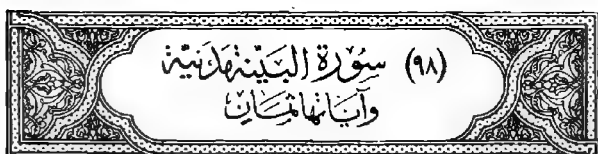 (٩٨) سُوْرَة البَيِّنَة مَدَنِيَّة
وآيَاتها ثمَان